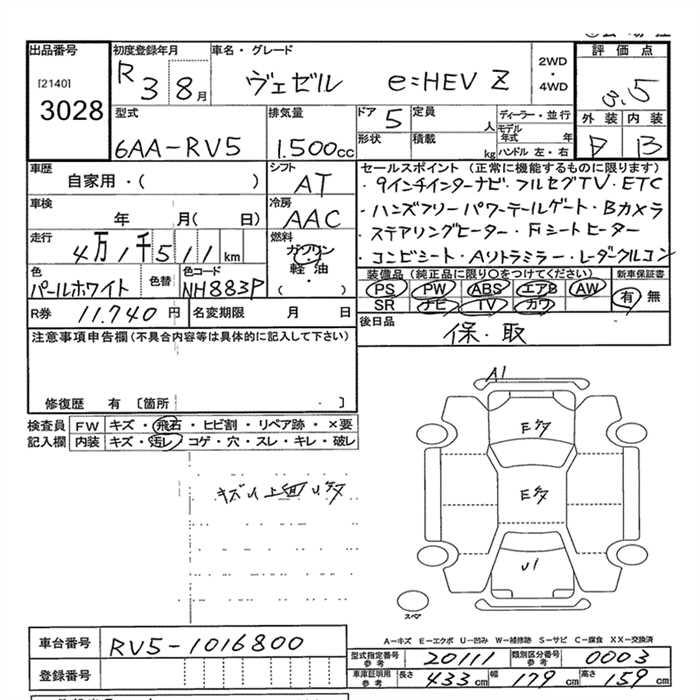 出品番号 初度登録年月 車名・グレード 評価点
[2140]
3028
R 3 8月 ヴェゼル e:HEV Z 2WD・4WD 3.5
外装 内装
B
型式 排気量 ドア 定員 ディーラー・並行
6AA-RV5 1.500cc 5 人 モデル年式 年
形状 積載 kg ハンドル 左・右
車歴 シフト セールスポイント (正常に機能するものに限ります)
自家用・( ) AT ・9インチインターナビ・フルセグTV・ETC
車検 冷房 ・ハンズフリーパワーテールゲート・Bカメラ
年 月( 日) AAC ・ステアリングヒーター・Fシートヒーター
走行 燃料 ・コンビシート・Aリトラミラー・レーダークルコン
4万1千511km ガソリン・軽油・( )
色 色替 色コード 装備品 (純正品に限り○をつけてください) 新車保証書
パールホワイト NH883P PS PW ABS エアB AW 有 無
SR ナビ TV カワ
R券 11.740円 名変期限 月 日 後日品
保・取
注意事項申告欄(不具合内容等は具体的に記入して下さい)
修復歴 有 〔箇所 〕
検査員記入欄 FW キズ・飛石・ヒビ割・リペア跡・×要
内装 キズ・汚レ・コゲ・穴・スレ・キレ・破レ
A1
E
E
U1
スペア
A-キズ E-エクボ U-凹み W-補修跡 S-サビ C-腐食 XX-交換済
車台番号 RV5-1016800
登録番号
型式指定番号参考 20111 類別区分番号参考 0003
車庫証明用参考 長さ 433cm 幅 179cm 高さ 159cm